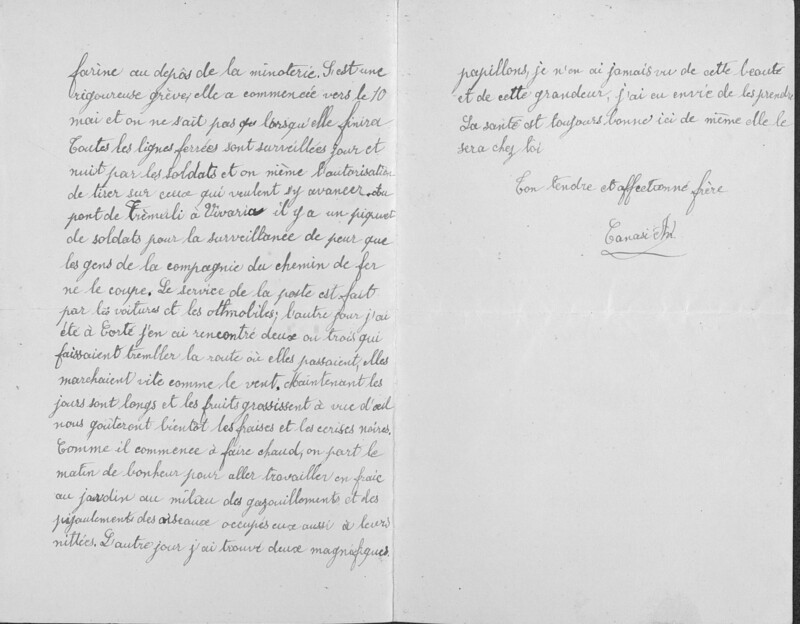 farine au depôs de la minoterie. C'est une
rigoureuse grève, elle a commencée vers le 10
mai et on ne sait pas lorsqu'elle finira
Toutes les lignes ferrées sont surveillées jour et
nuit par les soldats et on même l'autorisation
de tirer sur ceux qui veulent s'y avancer. Au
pont de Trémuli à Vivario il y a un piquet
de soldats pour la surveillance de peur que
les gens de la compagnie du chemin de fer
ne le coupe. Le service de la poste est fait
par les voitures et les othmobiles; l'autre jour j'ai
été à Corte j'en ai rencontré deux ou trois qui
faissaient trembler la route où elles passaient, elles
marchaient vite comme le vent. Maintenant les
jours sont longs et les fruits grossissent à vue d'œil
nous goûterons bientôt les fraises et les cerises noires.
Comme il commence à faire chaud, on part le
matin de bonheur pour aller travailler en fraic
au jardin au milieu des gazouillements et des
piaulement des oiseaux occupés eux aussi à leurs
nittées. L'autre jour j'ai trouvé deux magnifiques
papillons, je n'en ai jamais vu de cette beauté
et de cette grandeur, j'ai eu envie de les prendre
La santé est toujours bonne ici de même elle le
sera chez toi
Ton tendre et affectionné frère
Tanasi